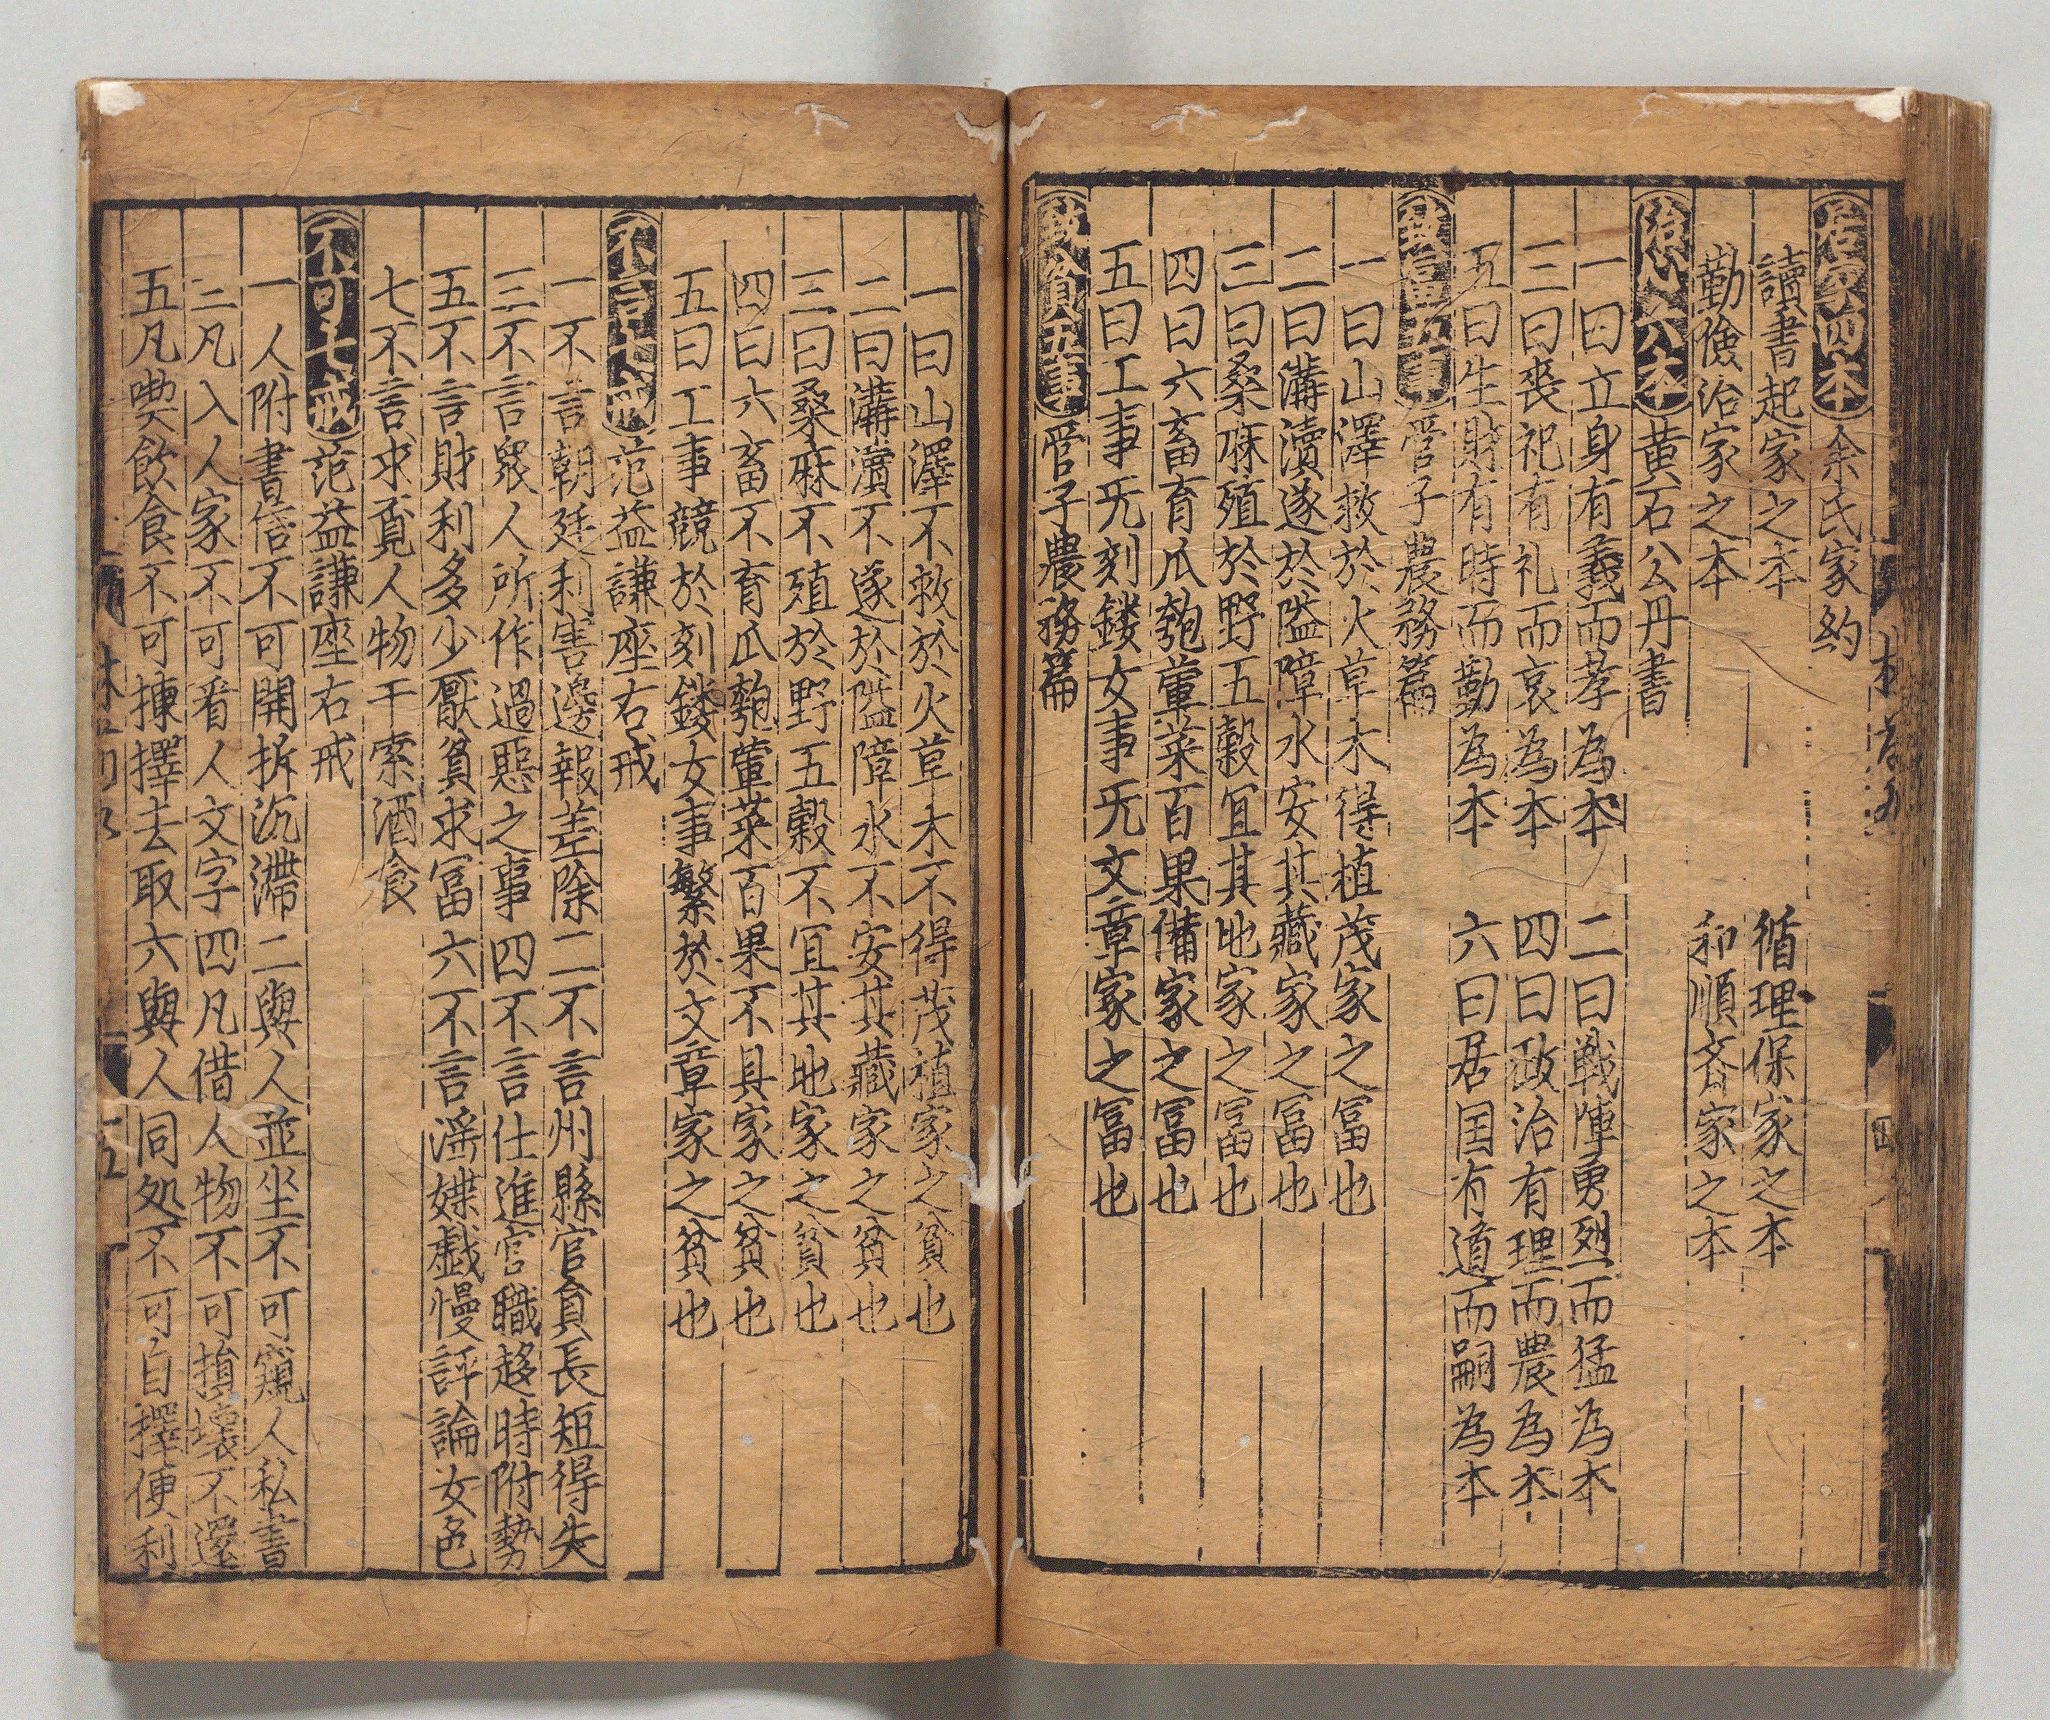 居家四本 余氏家約
讀書起家之本 循理保家之本
勤儉治家之本 和順齊家之本
治 六本 黄石公丹書
一曰立身有義而孝為本 二曰戦陣勇烈而猛為本
三曰喪祀有礼而哀為本 四曰政治有理而農為本
五曰生財有時而勤為本 六曰居国有道而嗣為本
致冨五事 管子農務篇
一曰山澤救於火草木得植茂家之冨也
二曰溝瀆遂於隘障水安其藏家之冨也
三曰桑麻殖於野五穀冝其地家之冨也
四曰六畜育瓜匏葷菜百果備家之冨也
五曰工事旡刻鏤女事旡文章家之冨也
致貧五事 管子農務篇
一曰山澤不救於火草木不得茂植家之貧也
二曰溝瀆不遂於隘障水不安其藏家之貧也
三曰桑麻不殖於野五穀不冝其地家之貧也
四曰六畜不育瓜匏葷菜百果不具家之貧也
五曰工事競於刻鏤女事繁於文章家之貧也
不言七戒 范益謙座右戒
一不言朝廷利害邊報差除二不言州縣官員長短得失
三不言衆人所作過惡之事四不言仕進官職趍時附勢
五不言財利多少厭貧求冨六不言滛媟戱慢評論女色
七不言求覓人物干索酒食
不可七戒 范益謙座右戒
一人附書信不可開拆沉滯二與人並坐不可窺人私書
三凡入人家不可看人文字四凡借人物不可損壞不還
五凡喫飲食不可揀擇去取六與人同処不可自擇便利